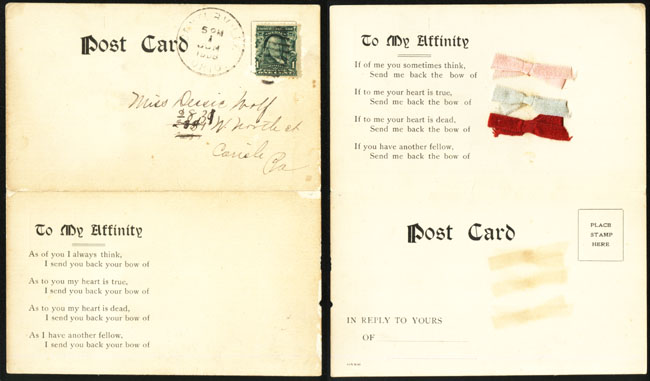 Post Card
1908
Miss Dessie Wolf
828
W North st
Carlisle
Pa
To My Affinity
As of you I always think,
I send you back your bow of
As to you my heart is true,
I send you back your bow of
As to you my heart is dead,
I send you back your bow of
As I have another fellow,
I send you back your bow of
To My Affinity
If of me you sometimes think,
Send me back the bow of
If to me your heart is true,
Send me back the bow of
If to me your heart is dead,
Send me back the bow of
If you have another fellow,
Send me back the bow of
Post Card
PLACE
STAMP
HERE
IN REPLY TO YOURS
OF